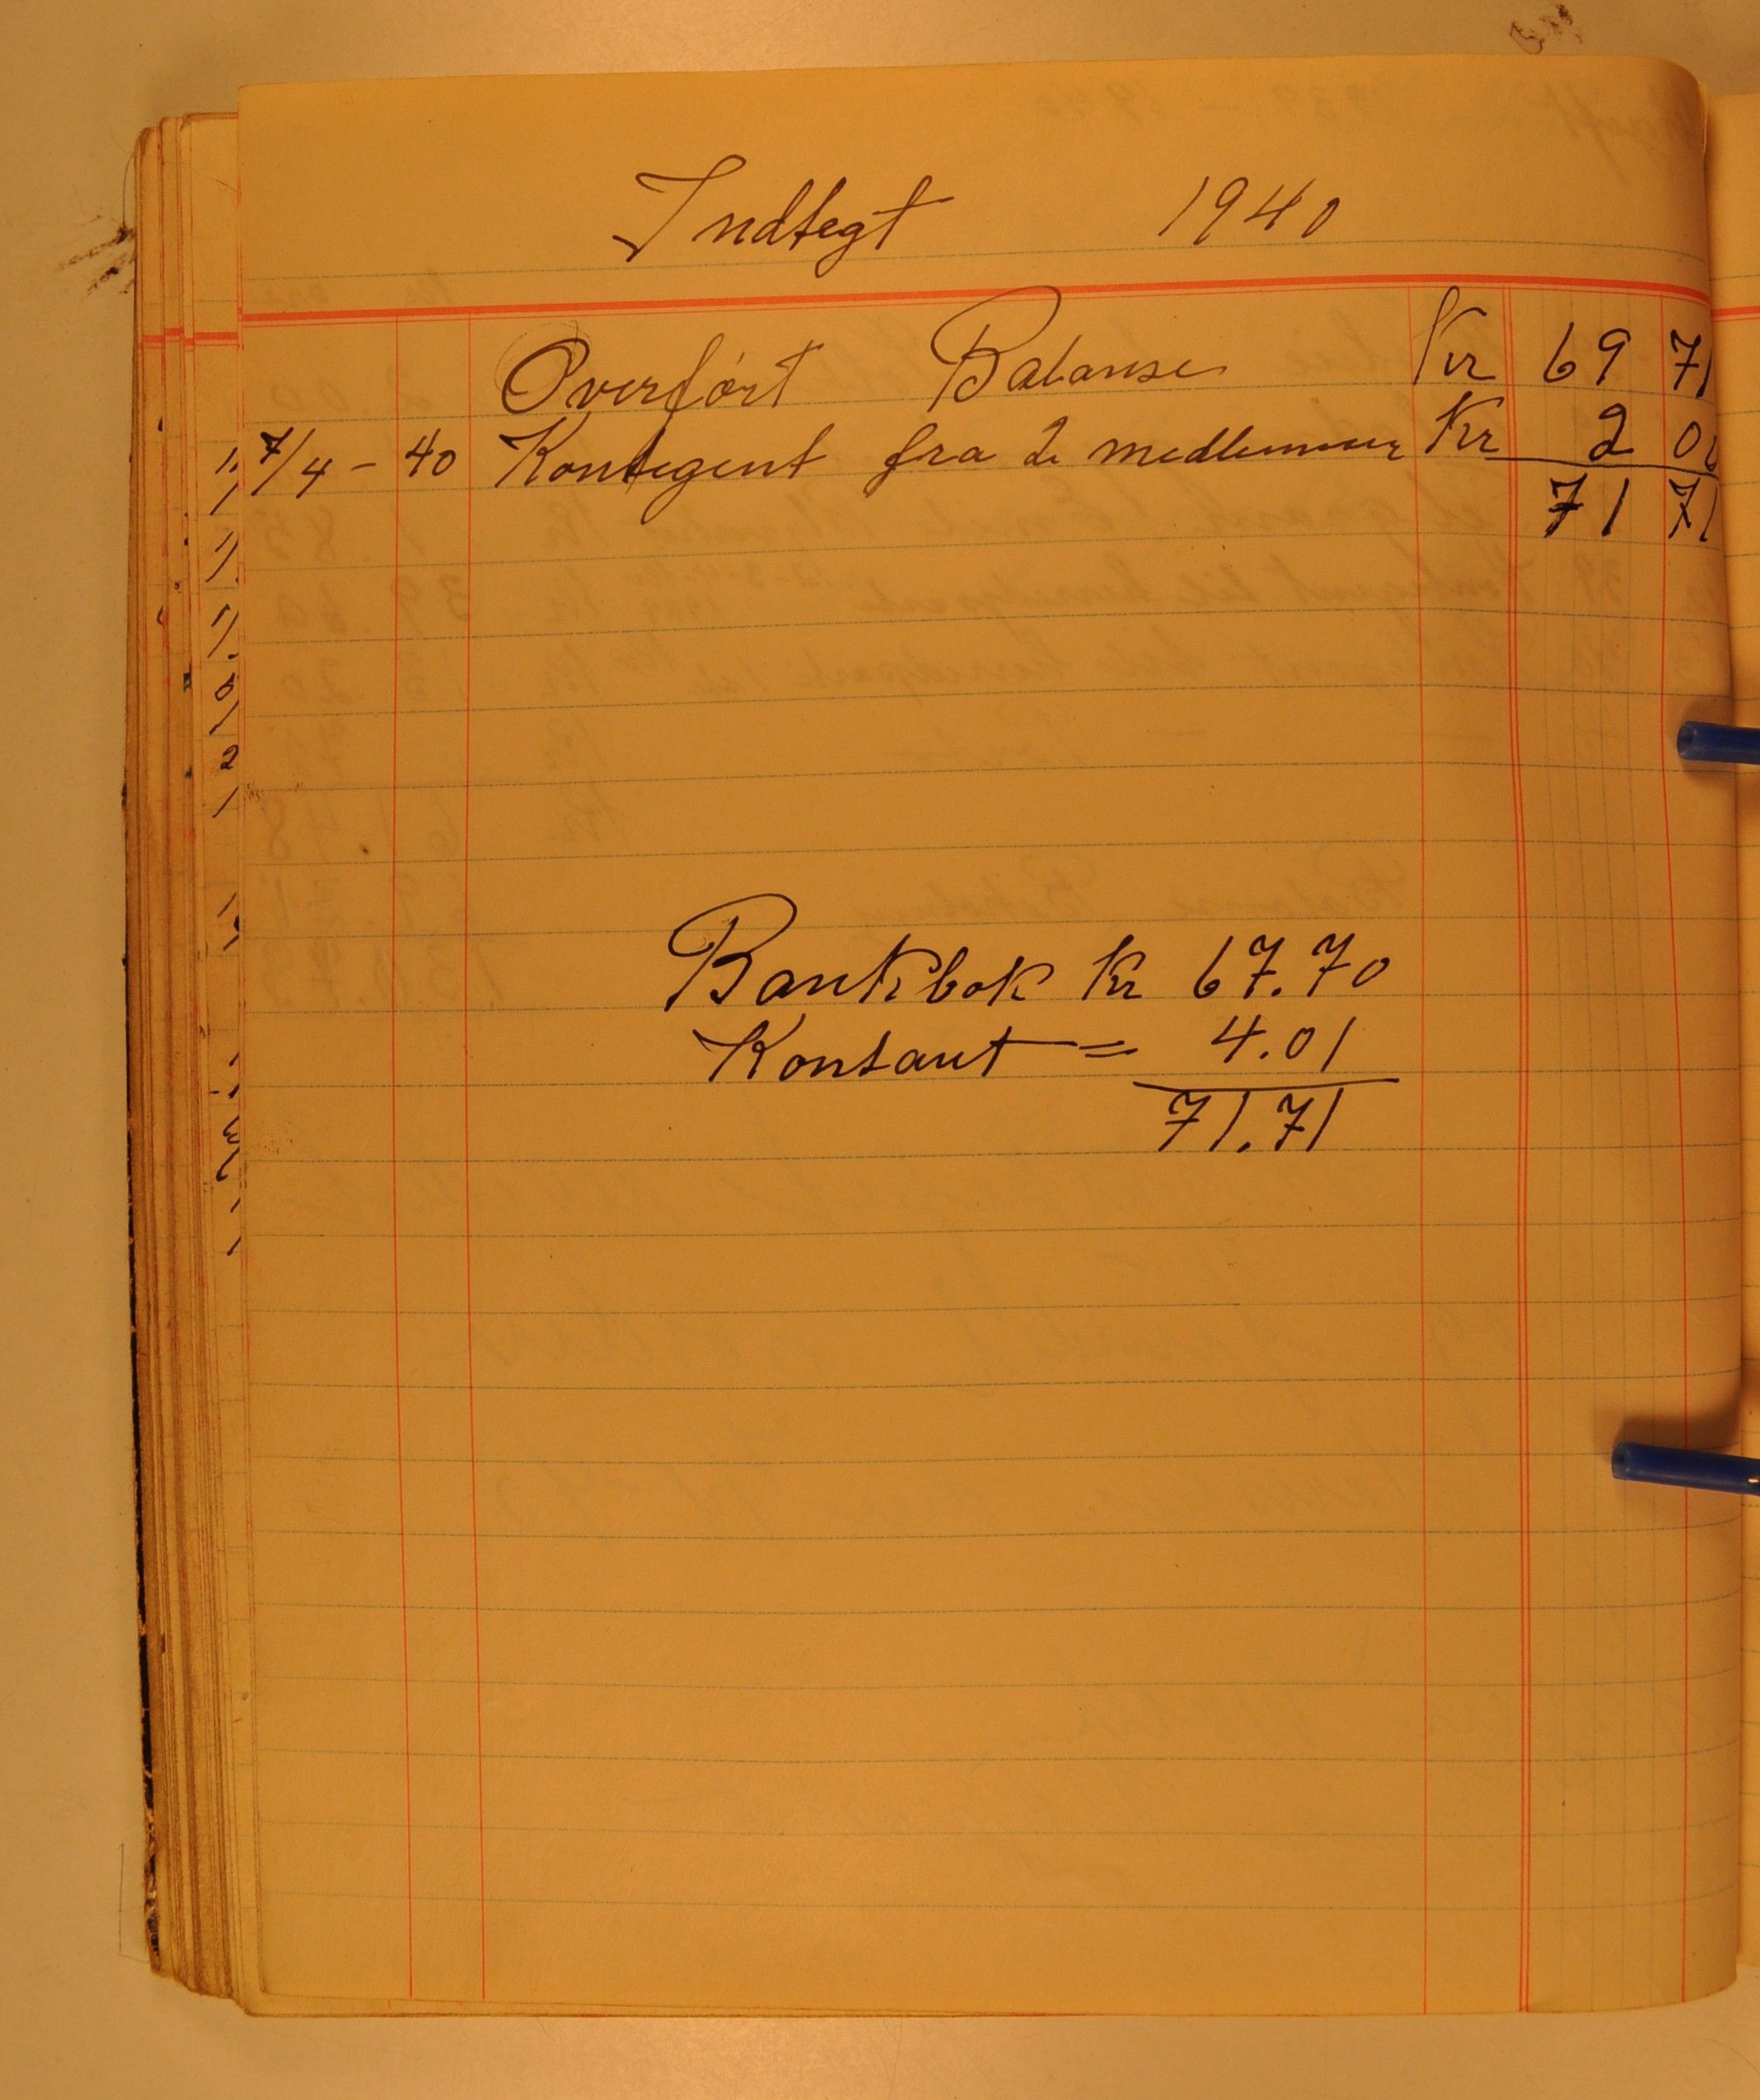 Indtegt 1940
Overført Balanse Kr 69 71
7/4 - 40 Kontegent fra 2 medlemmer Kr 2 00
71 71
Bankbok Kr 67.70
Kontant = 4.01
71.71